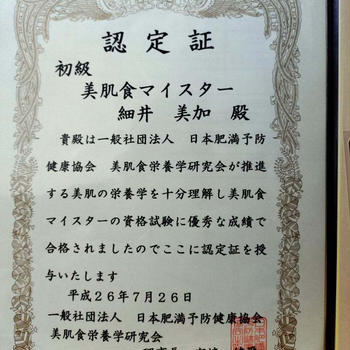 認定証
初級
美肌食マイスター
細井 美加 殿
貴殿は一般社団法人 日本肥満予防
健康協会 美肌食栄養学研究会が推進
する美肌の栄養学を十分理解し美肌食
マイスターの資格試験に優秀な成績で
合格されましたのでここに認定証を授
与いたします
平成26年7月26日
一般社団法人 日本肥満予防健康協会
美肌食栄養学研究会